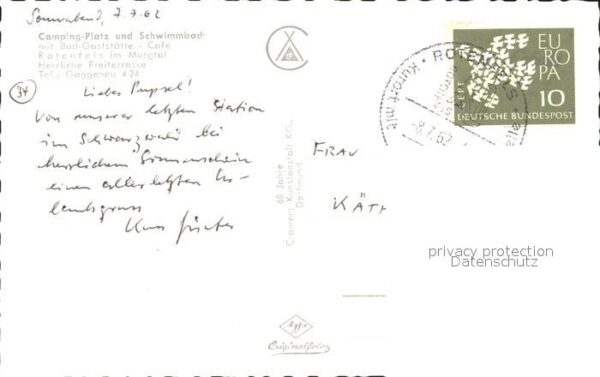 Sonnabend, 7.7.62
Camping-Platz und Schwimmbad
mit Bad-Gaststätte - Café
Rotenfels im Murgtal
Herrliche Freiterrasse
Tel.: Gaggenau 424
34
Liebes Pupsel!
Von unserer letzten Station
im Schwarzwald bei
herrlichem Sonnenschein
einen allerletzten Ur-
laubsgruss
60 Jahre
Cramers Kunstanstalt KG.,
Dortmund
FRAU
KÄTH
ROTENFELS
Kurort mit
-8.7.62
EUROPA
SEPT
10
DEUTSCHE BUNDESPOST
privacy protection
Datenschutz
Agfa
Originalfoto